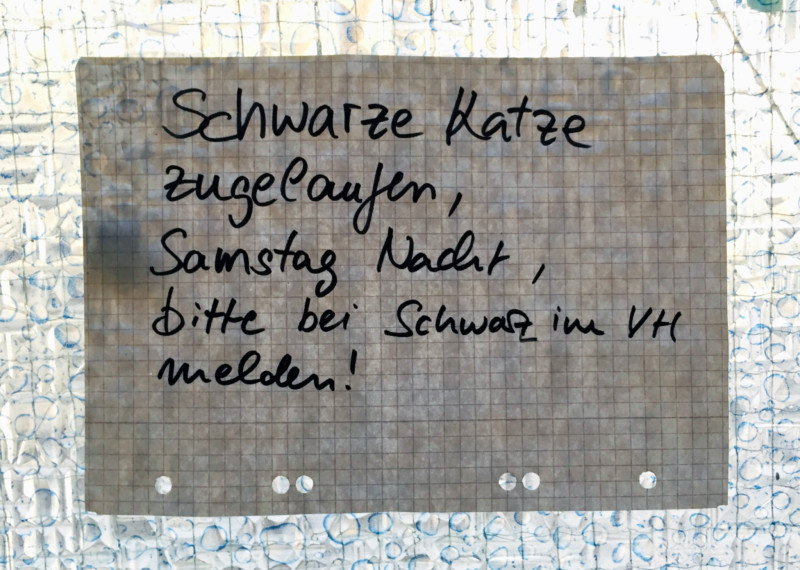 Schwarze Katze
zugelaufen,
Samstag Nacht,
bitte bei Schwarz im VH
melden!